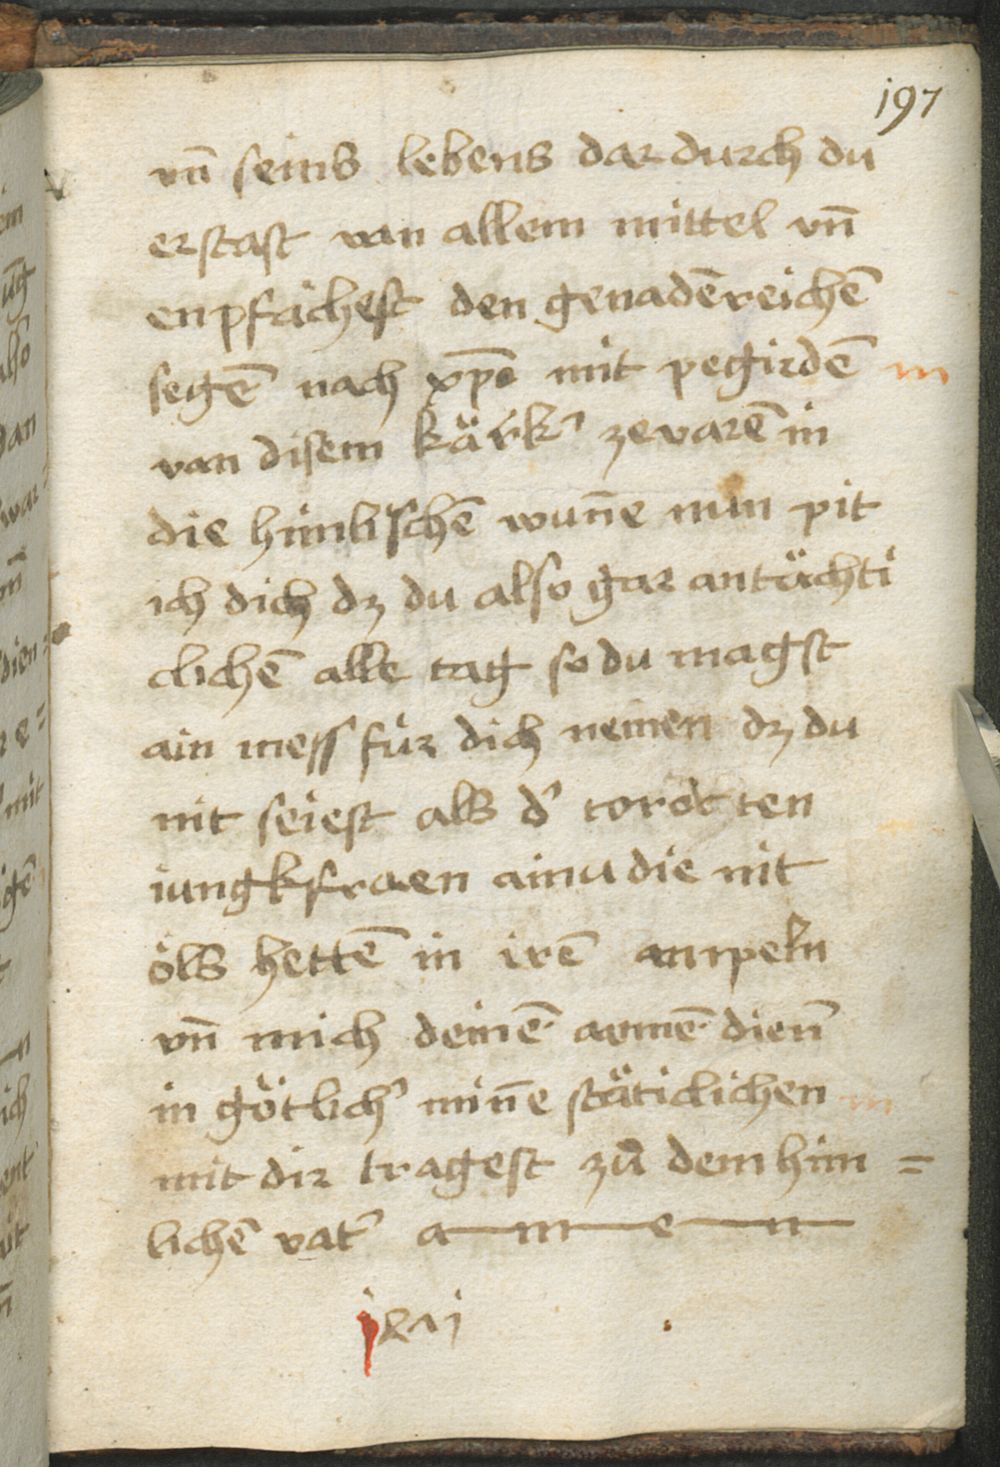 197
vn̄ seins lebens dar durch du
erstast van allem mittel vn̄
enpfächest den genadēreichē
segē nach xp̄o mit pegirdē
van disem kärkʼ zevarē in
die himlischē wun̄e nun pit
ich dich dz du also gar antächti
clichē alle tag so du magst
ain mess für dich nemen dz du
nit seiest als dʼ torötten
iungkfraen ainu die nit
öls hettē in irē ampeln
vn̄ mich deinē armē dien̄
in götlichʼ min̄e stäticlichen
mit dir tragest zů dem him =
lichē vatʼ a—m—e—n